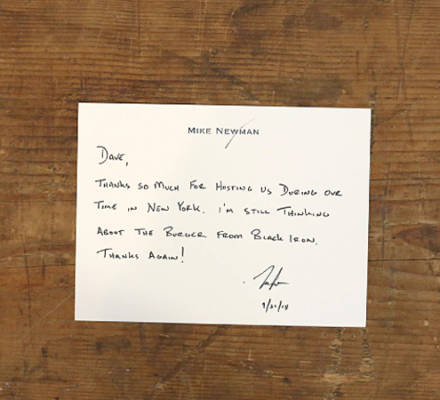 MIKE NEWMAN
DAVE,
THANKS SO MUCH FOR HOSTING US DURING OUR
TIME IN NEW YORK. I'M STILL THINKING
ABOUT THE BURGER FROM BLACK IRON.
THANKS AGAIN!